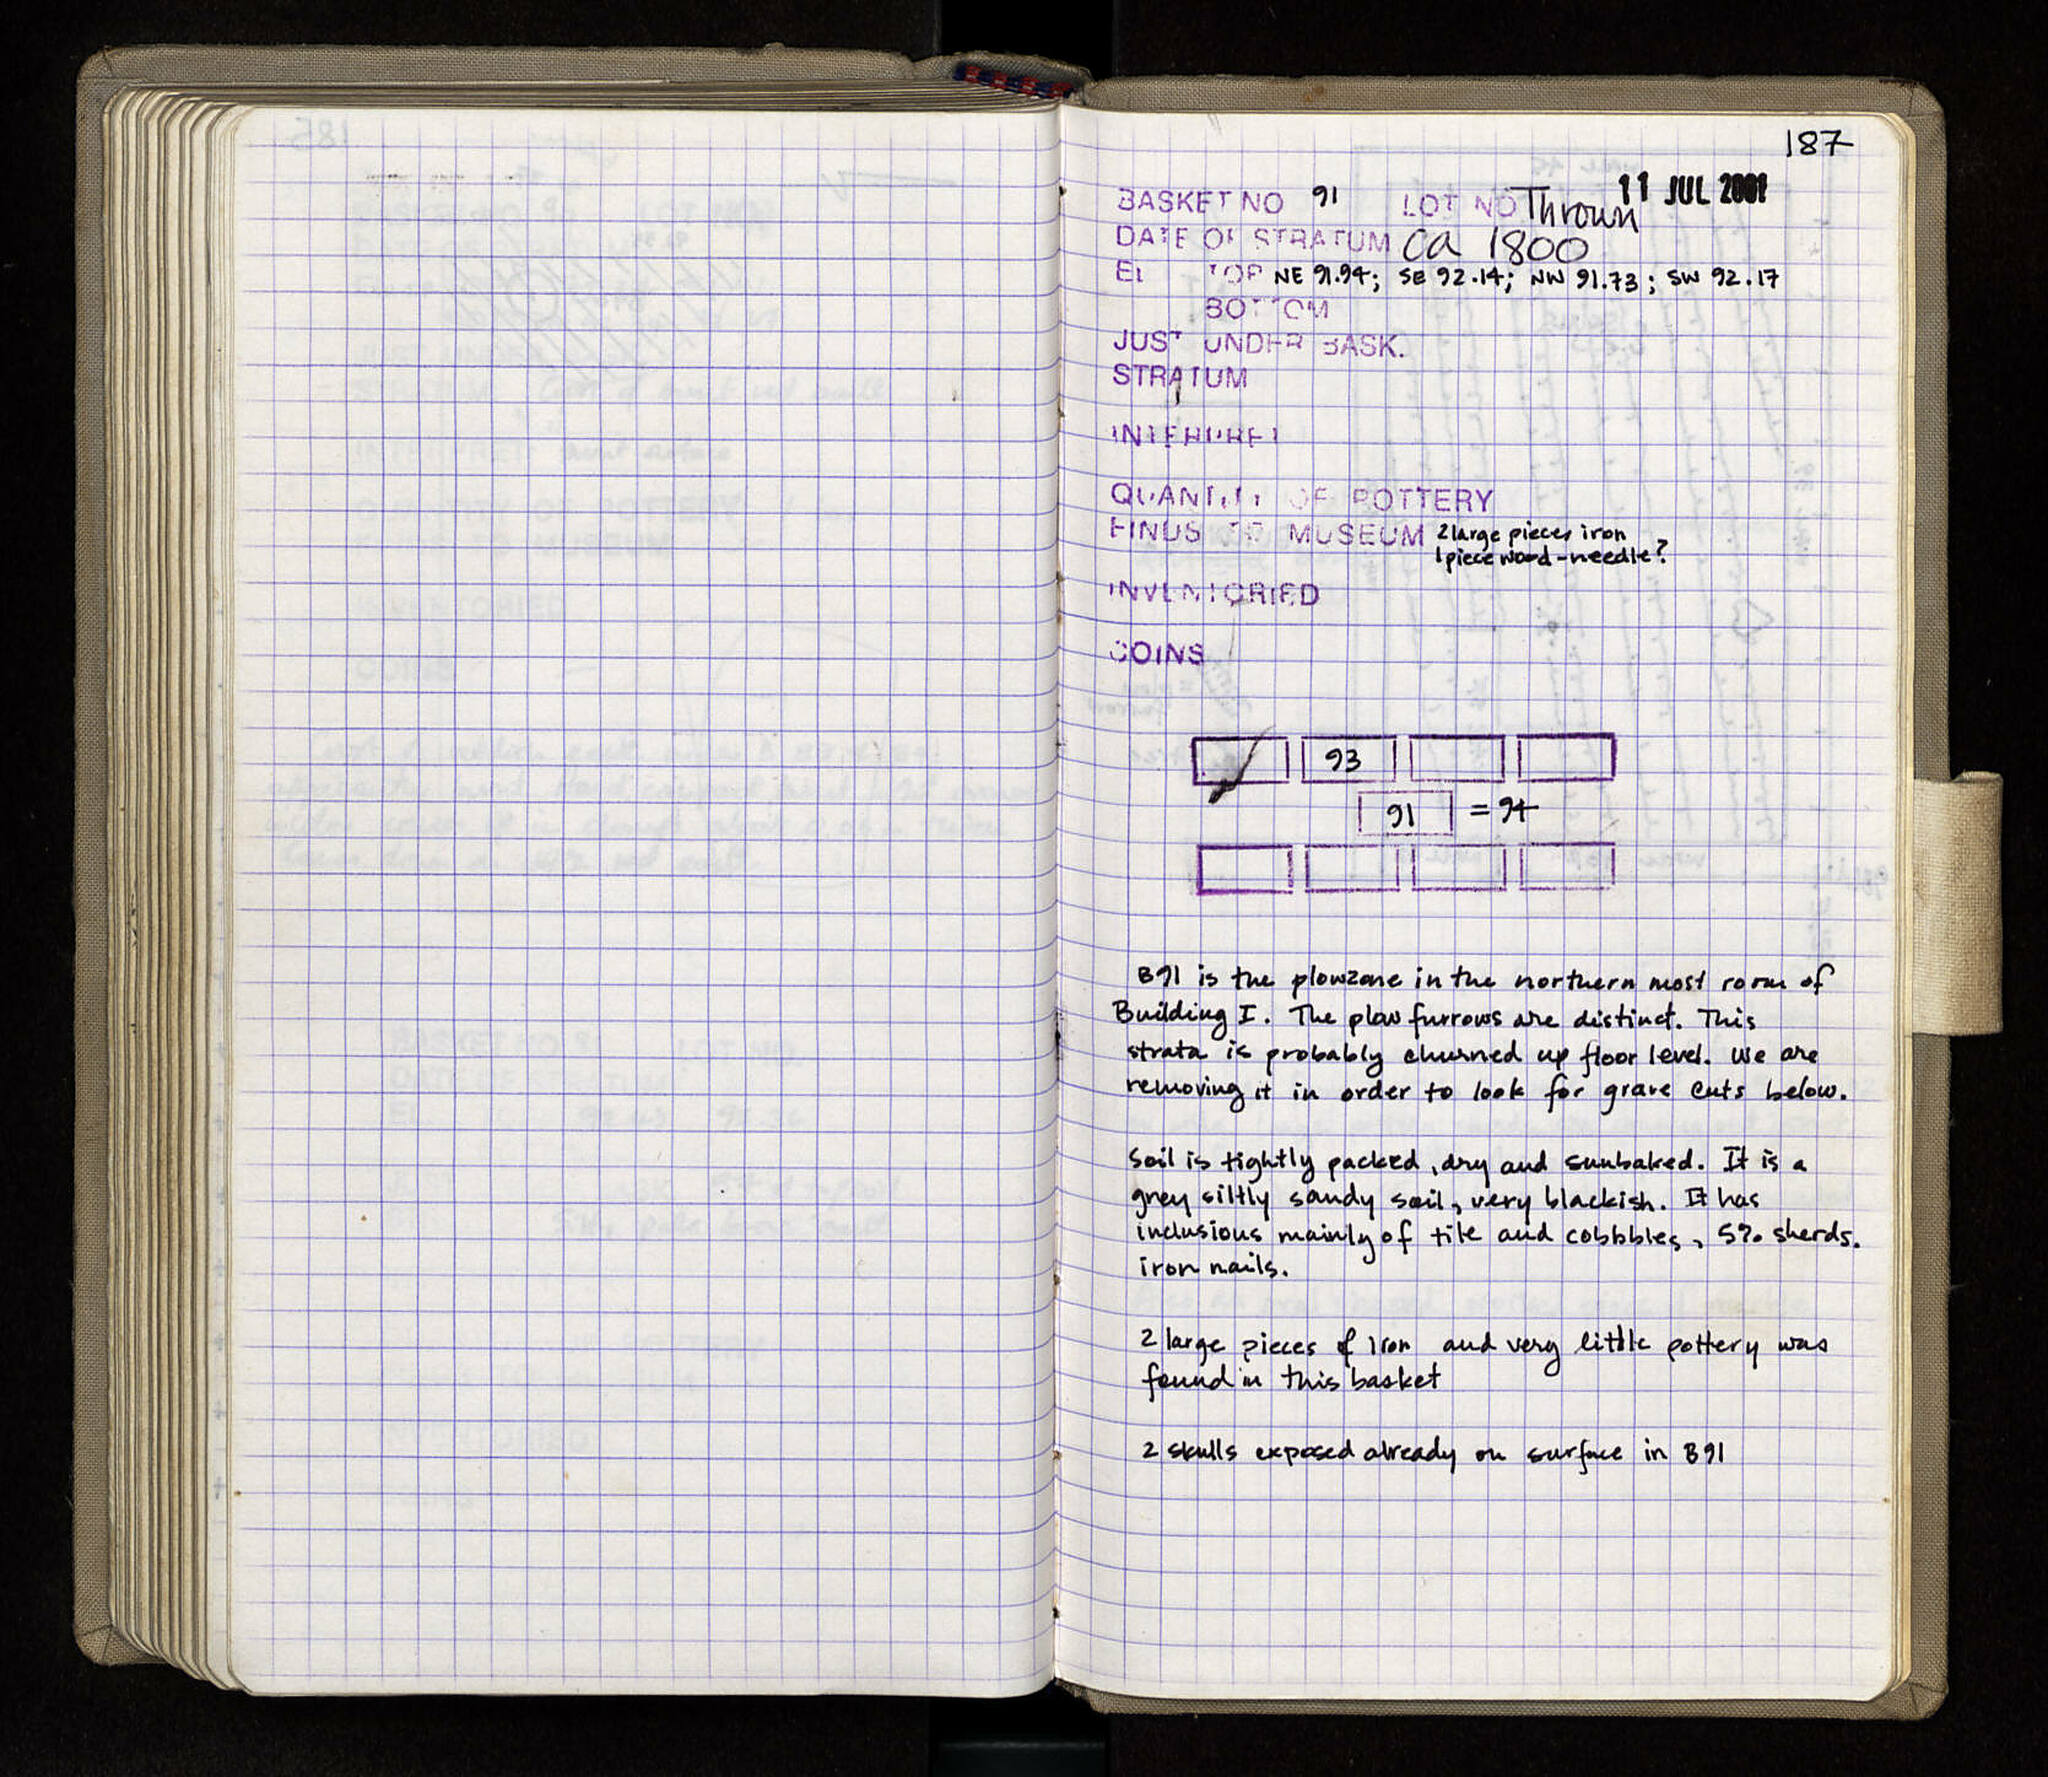 187
11 JUL 2001
BASKET NO 91 LOT NO Thrown
DATE OF STRATUM ca 1800
EL TOP NE 91.94; SE 92.14; NW 91.73; SW 92.17
BOTTOM
JUST UNDER BASK.
STRATUM
INTERPRET
QUANTITY OF POTTERY
FINDS TO MUSEUM 2 large pieces iron
1 piece wood-needle?
INVENTORIED
COINS
93
91 = 94
B91 is the plowzone in the northern most room of
Building I. The plow furrows are distinct. This
strata is probably churned up floor level. We are
removing it in order to look for grave cuts below.
Soil is tightly packed, dry and sunbaked. It is a
grey siltly sandy soil, very blackish. It has
inclusions mainly of tile and cobbbles, 5% sherds.
iron nails.
2 large pieces of iron and very little pottery was
found in this basket
2 skulls exposed already on surface in B91